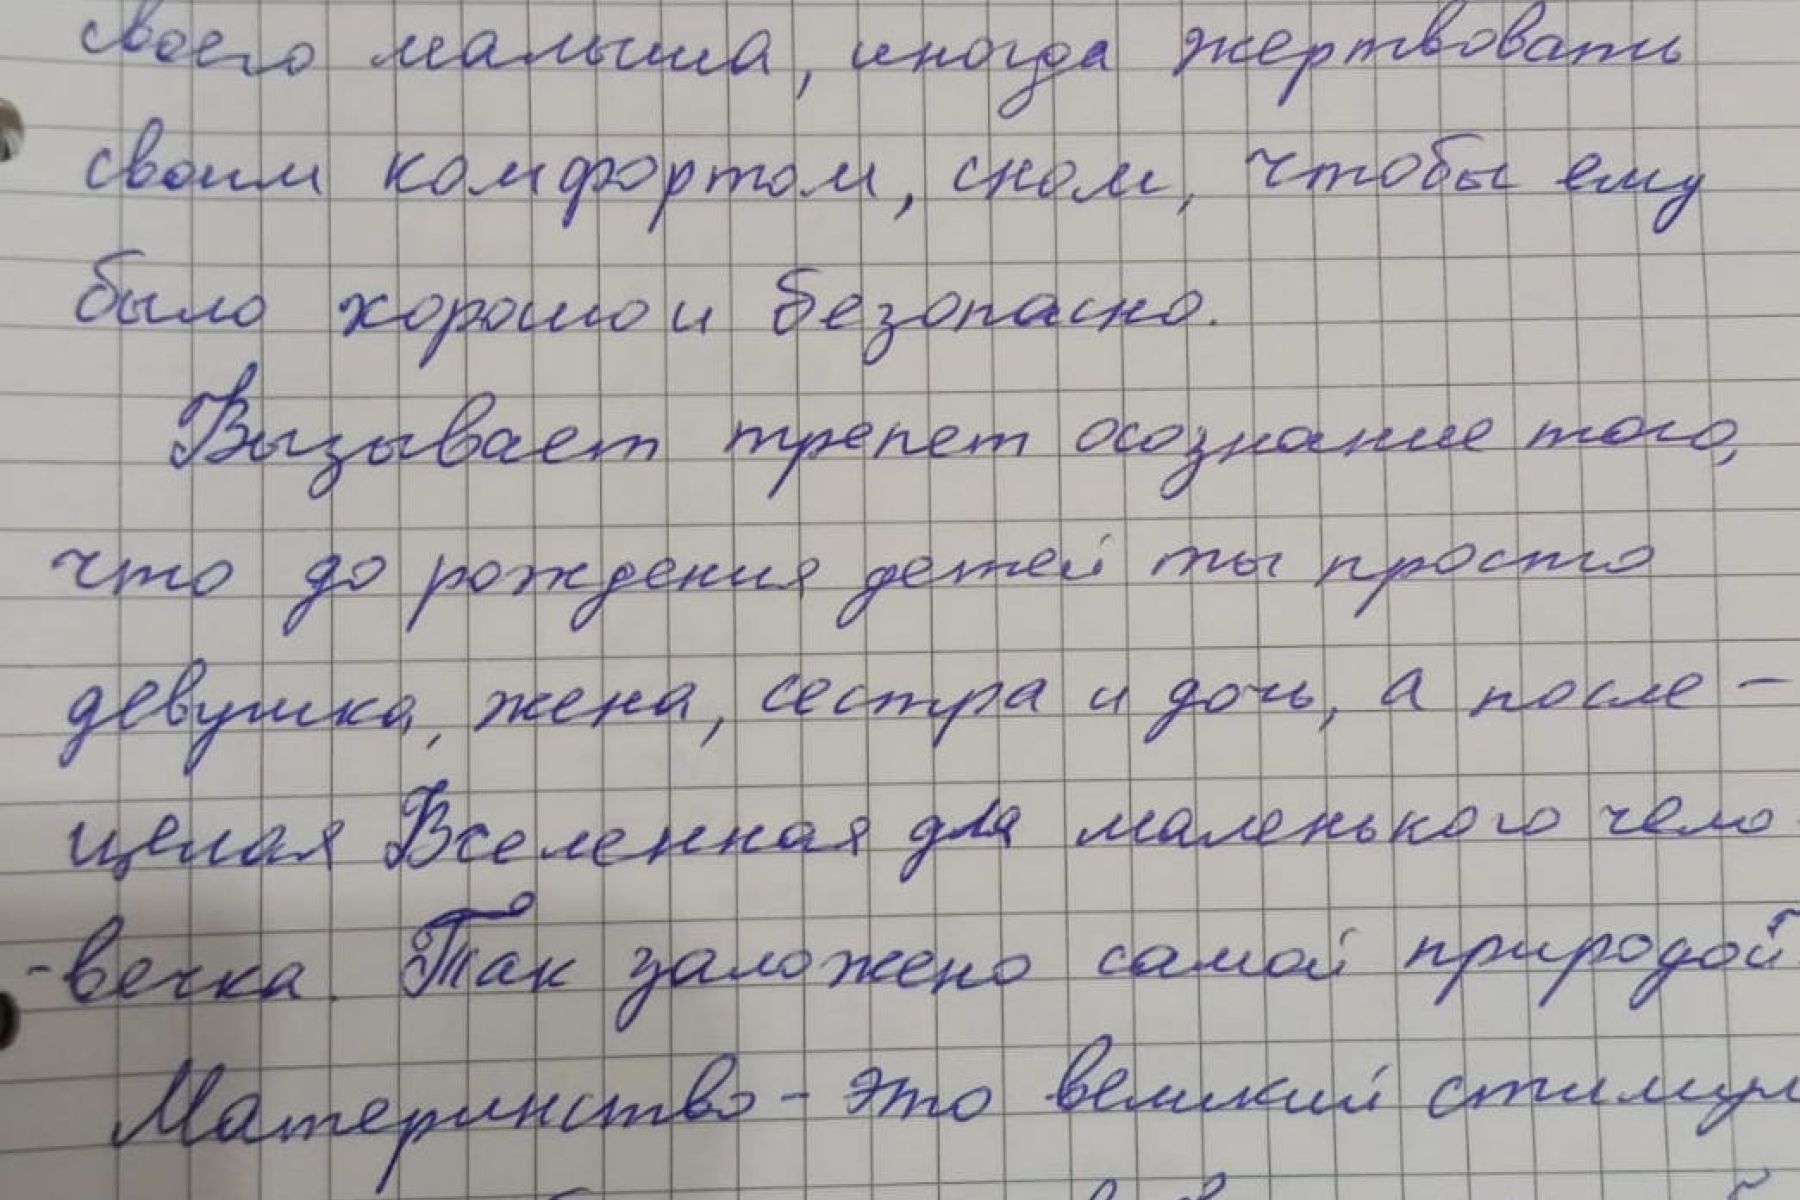 своего малыша, иногда жертвовать
своим комфортом, сном, чтобы ему
было хорошо и безопасно.
Вызывает трепет осознание того,
что до рождения детей ты просто
девушка, жена, сестра и дочь, а после -
целая Вселенная для маленького чело
-вечка. Так заложено самой природой
Материнство - это великий стимул